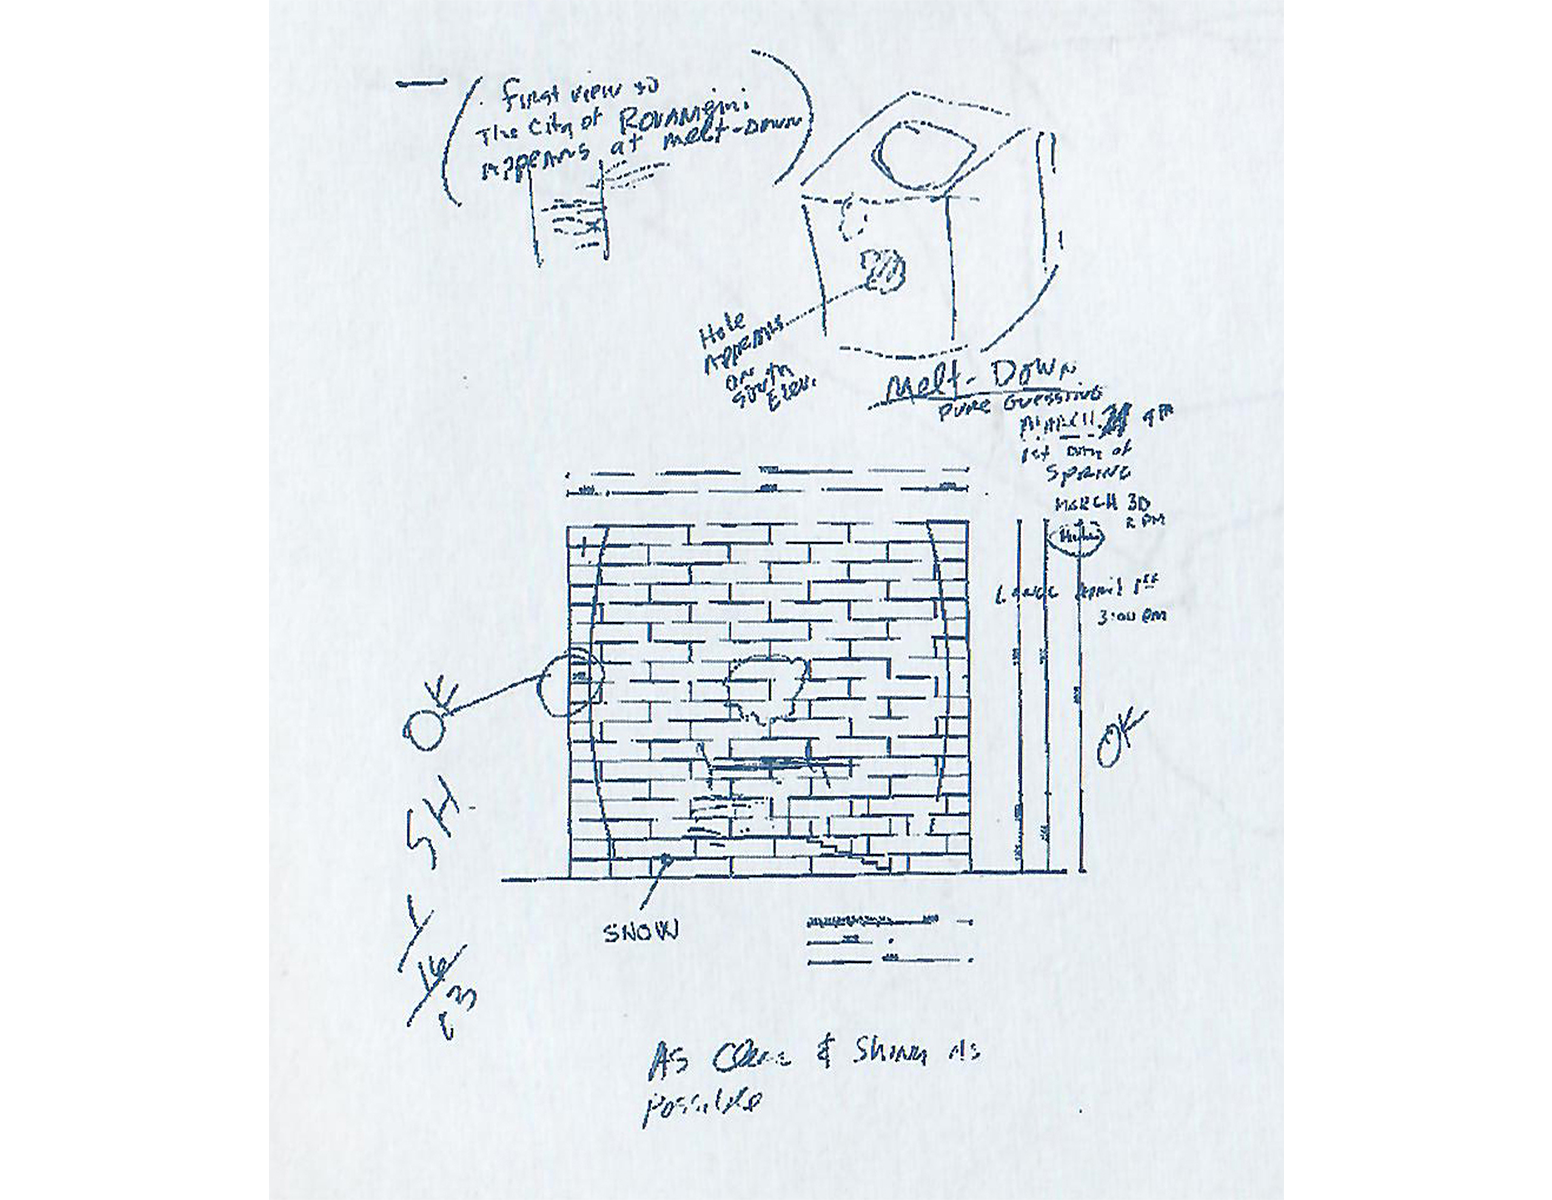 First view to
The City of Rovaniemi
Appears at Melt-Down
Hole
Appears
on
South
Elev.
Melt-Down
PURE GUESSING
MARCH 9 PM
1st DAY of
SPRING
MARCH 30
2 PM
Large April 1st
3:00 PM
OK
OK
SH
1
16
03
SNOW
As Clear & Sharp As
possible